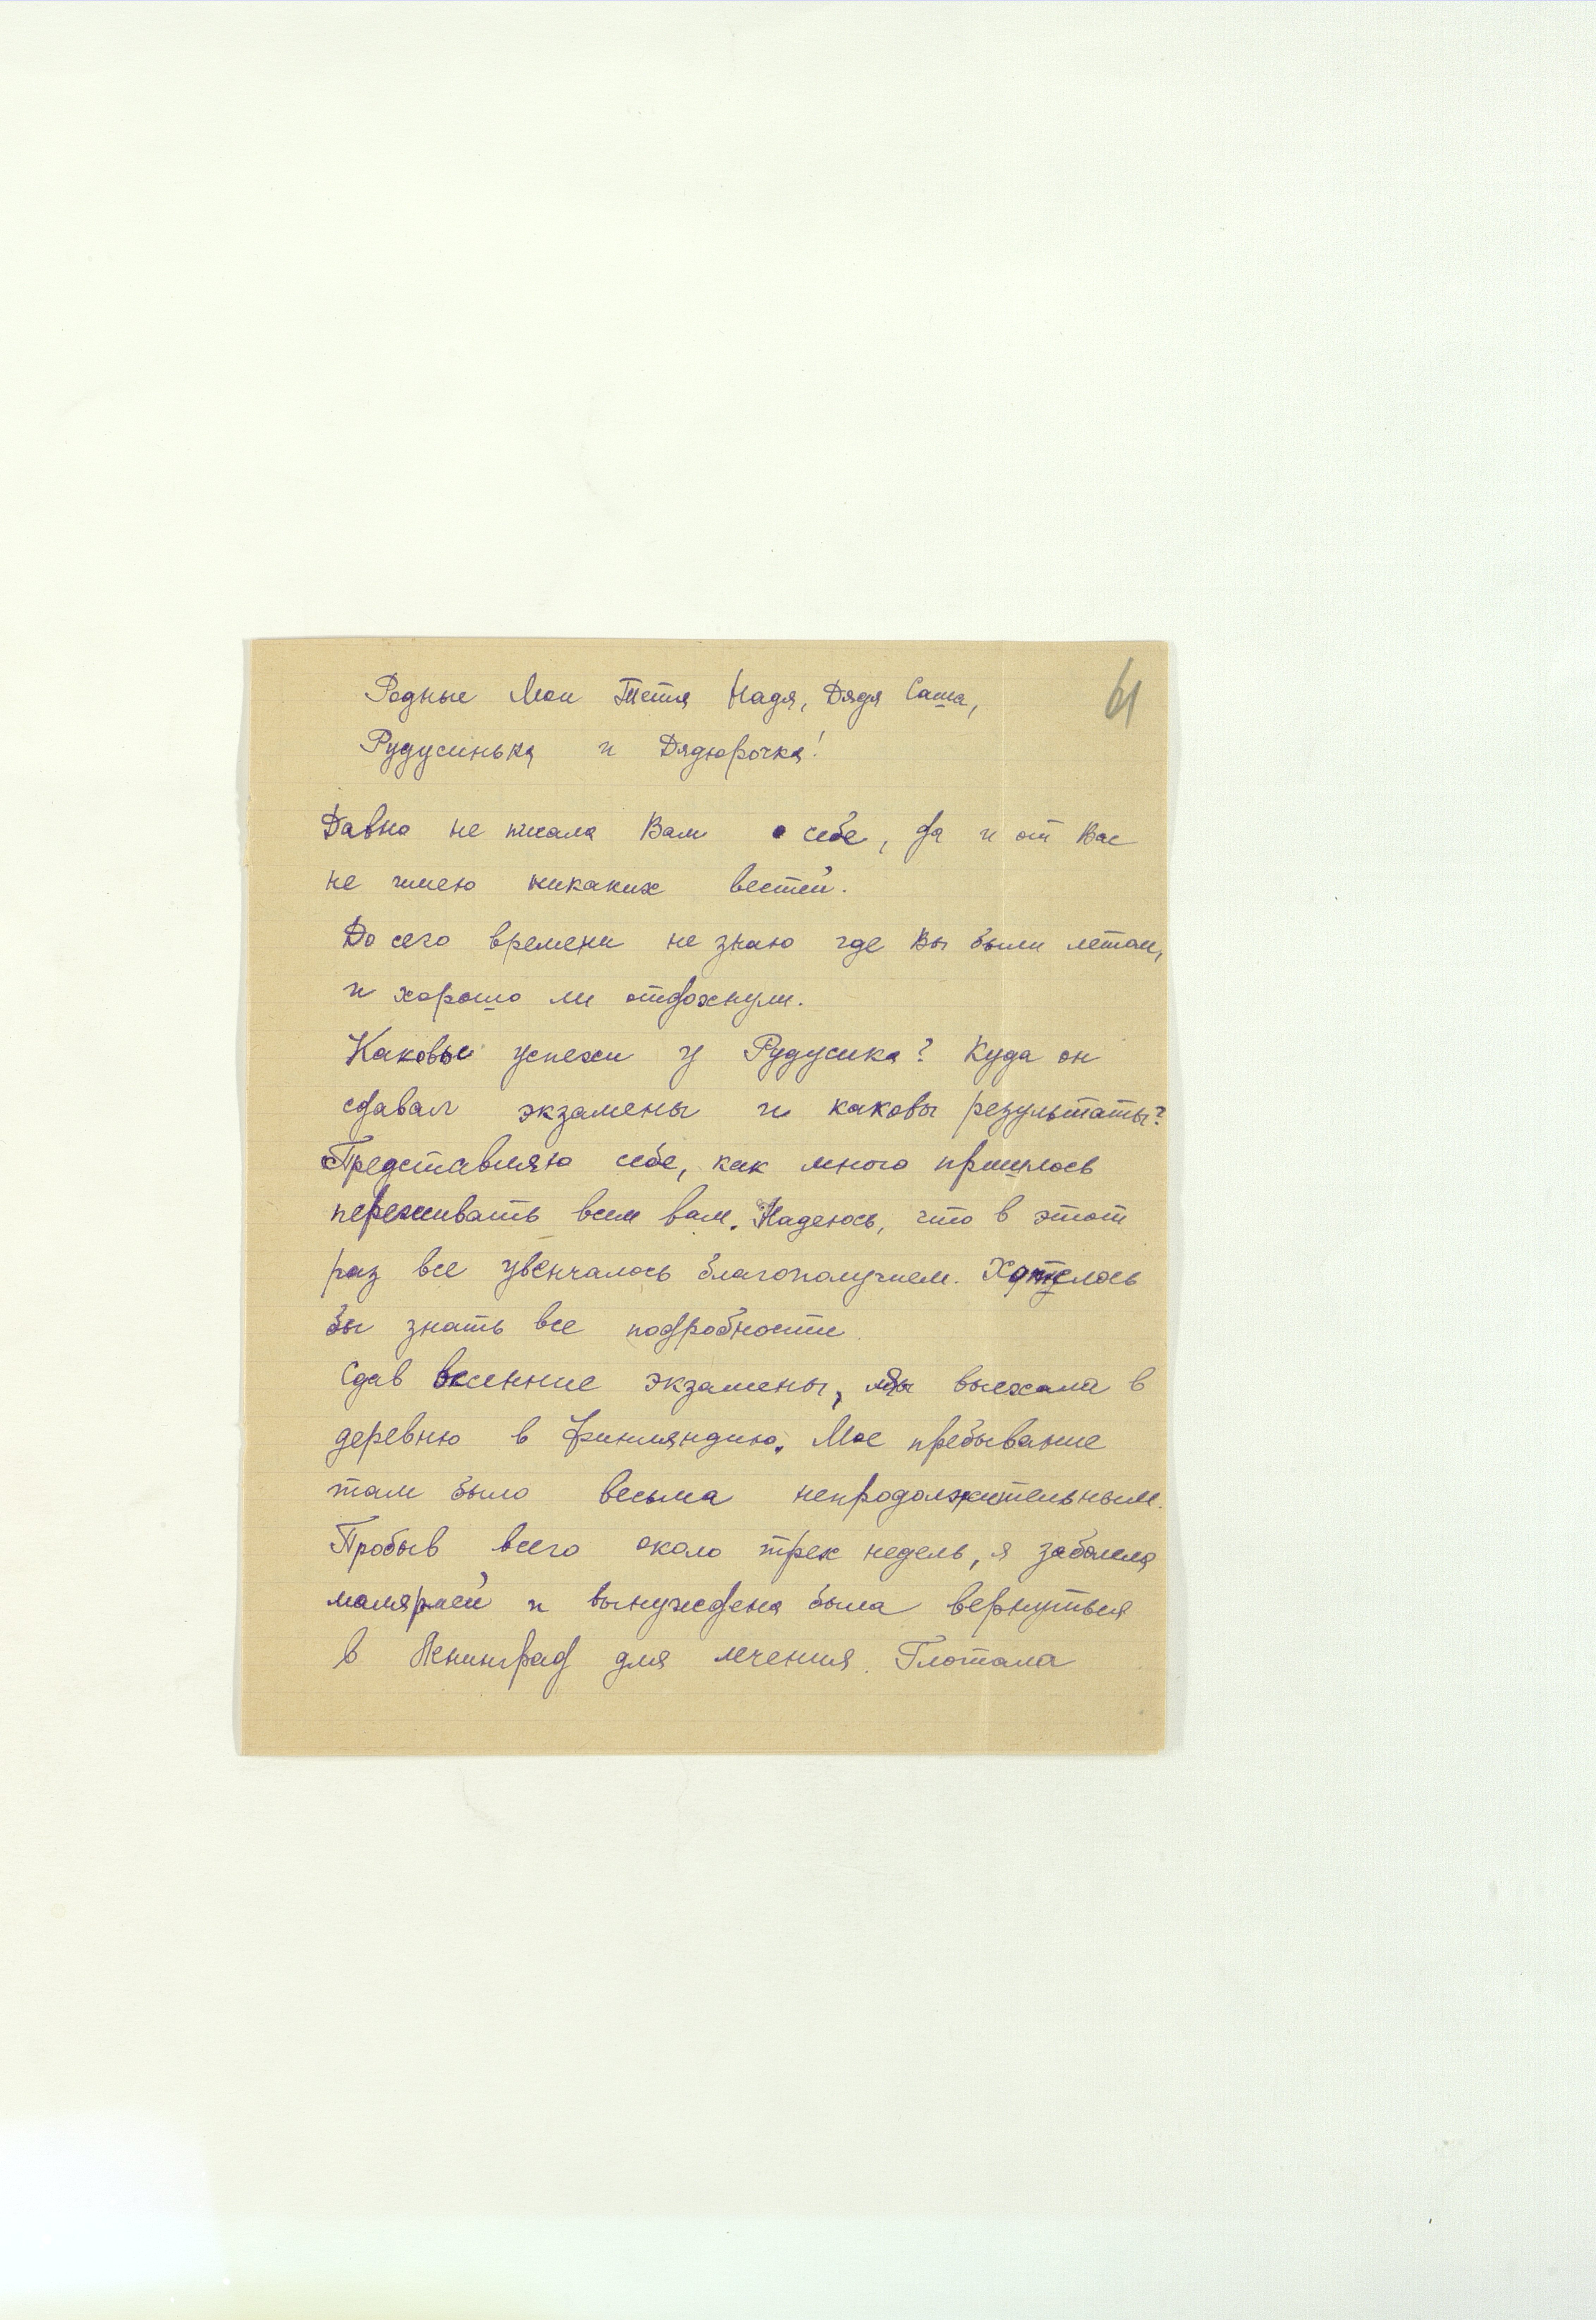 61
Родные Мои Тетя Надя, Дядя Саша,
Рудусинька и Дядюрочка!
Давно не писала Вам о себе, да и от Вас
не имею никаких вестей.
До сего времени не знаю где Вы были летом,
и хорошо ли отдохнули.
Каковы успехи у Рудусика? Куда он
сдавал экзамены и каковы результаты?
Представляю себе, как много пришлось
переживать всем вам. Надеюсь, что в этот
раз все увенчалось благополучием. Хотелось
бы знать все подробности.
Сдав весенние экзамены, выехала в
деревню в Финляндию. Мое пребывание
там было весьма непродолжительным.
Пробыв всего около трех недель, я заболела
малярией и вынуждена была вернуться
в Ленинград для лечения. Глотала